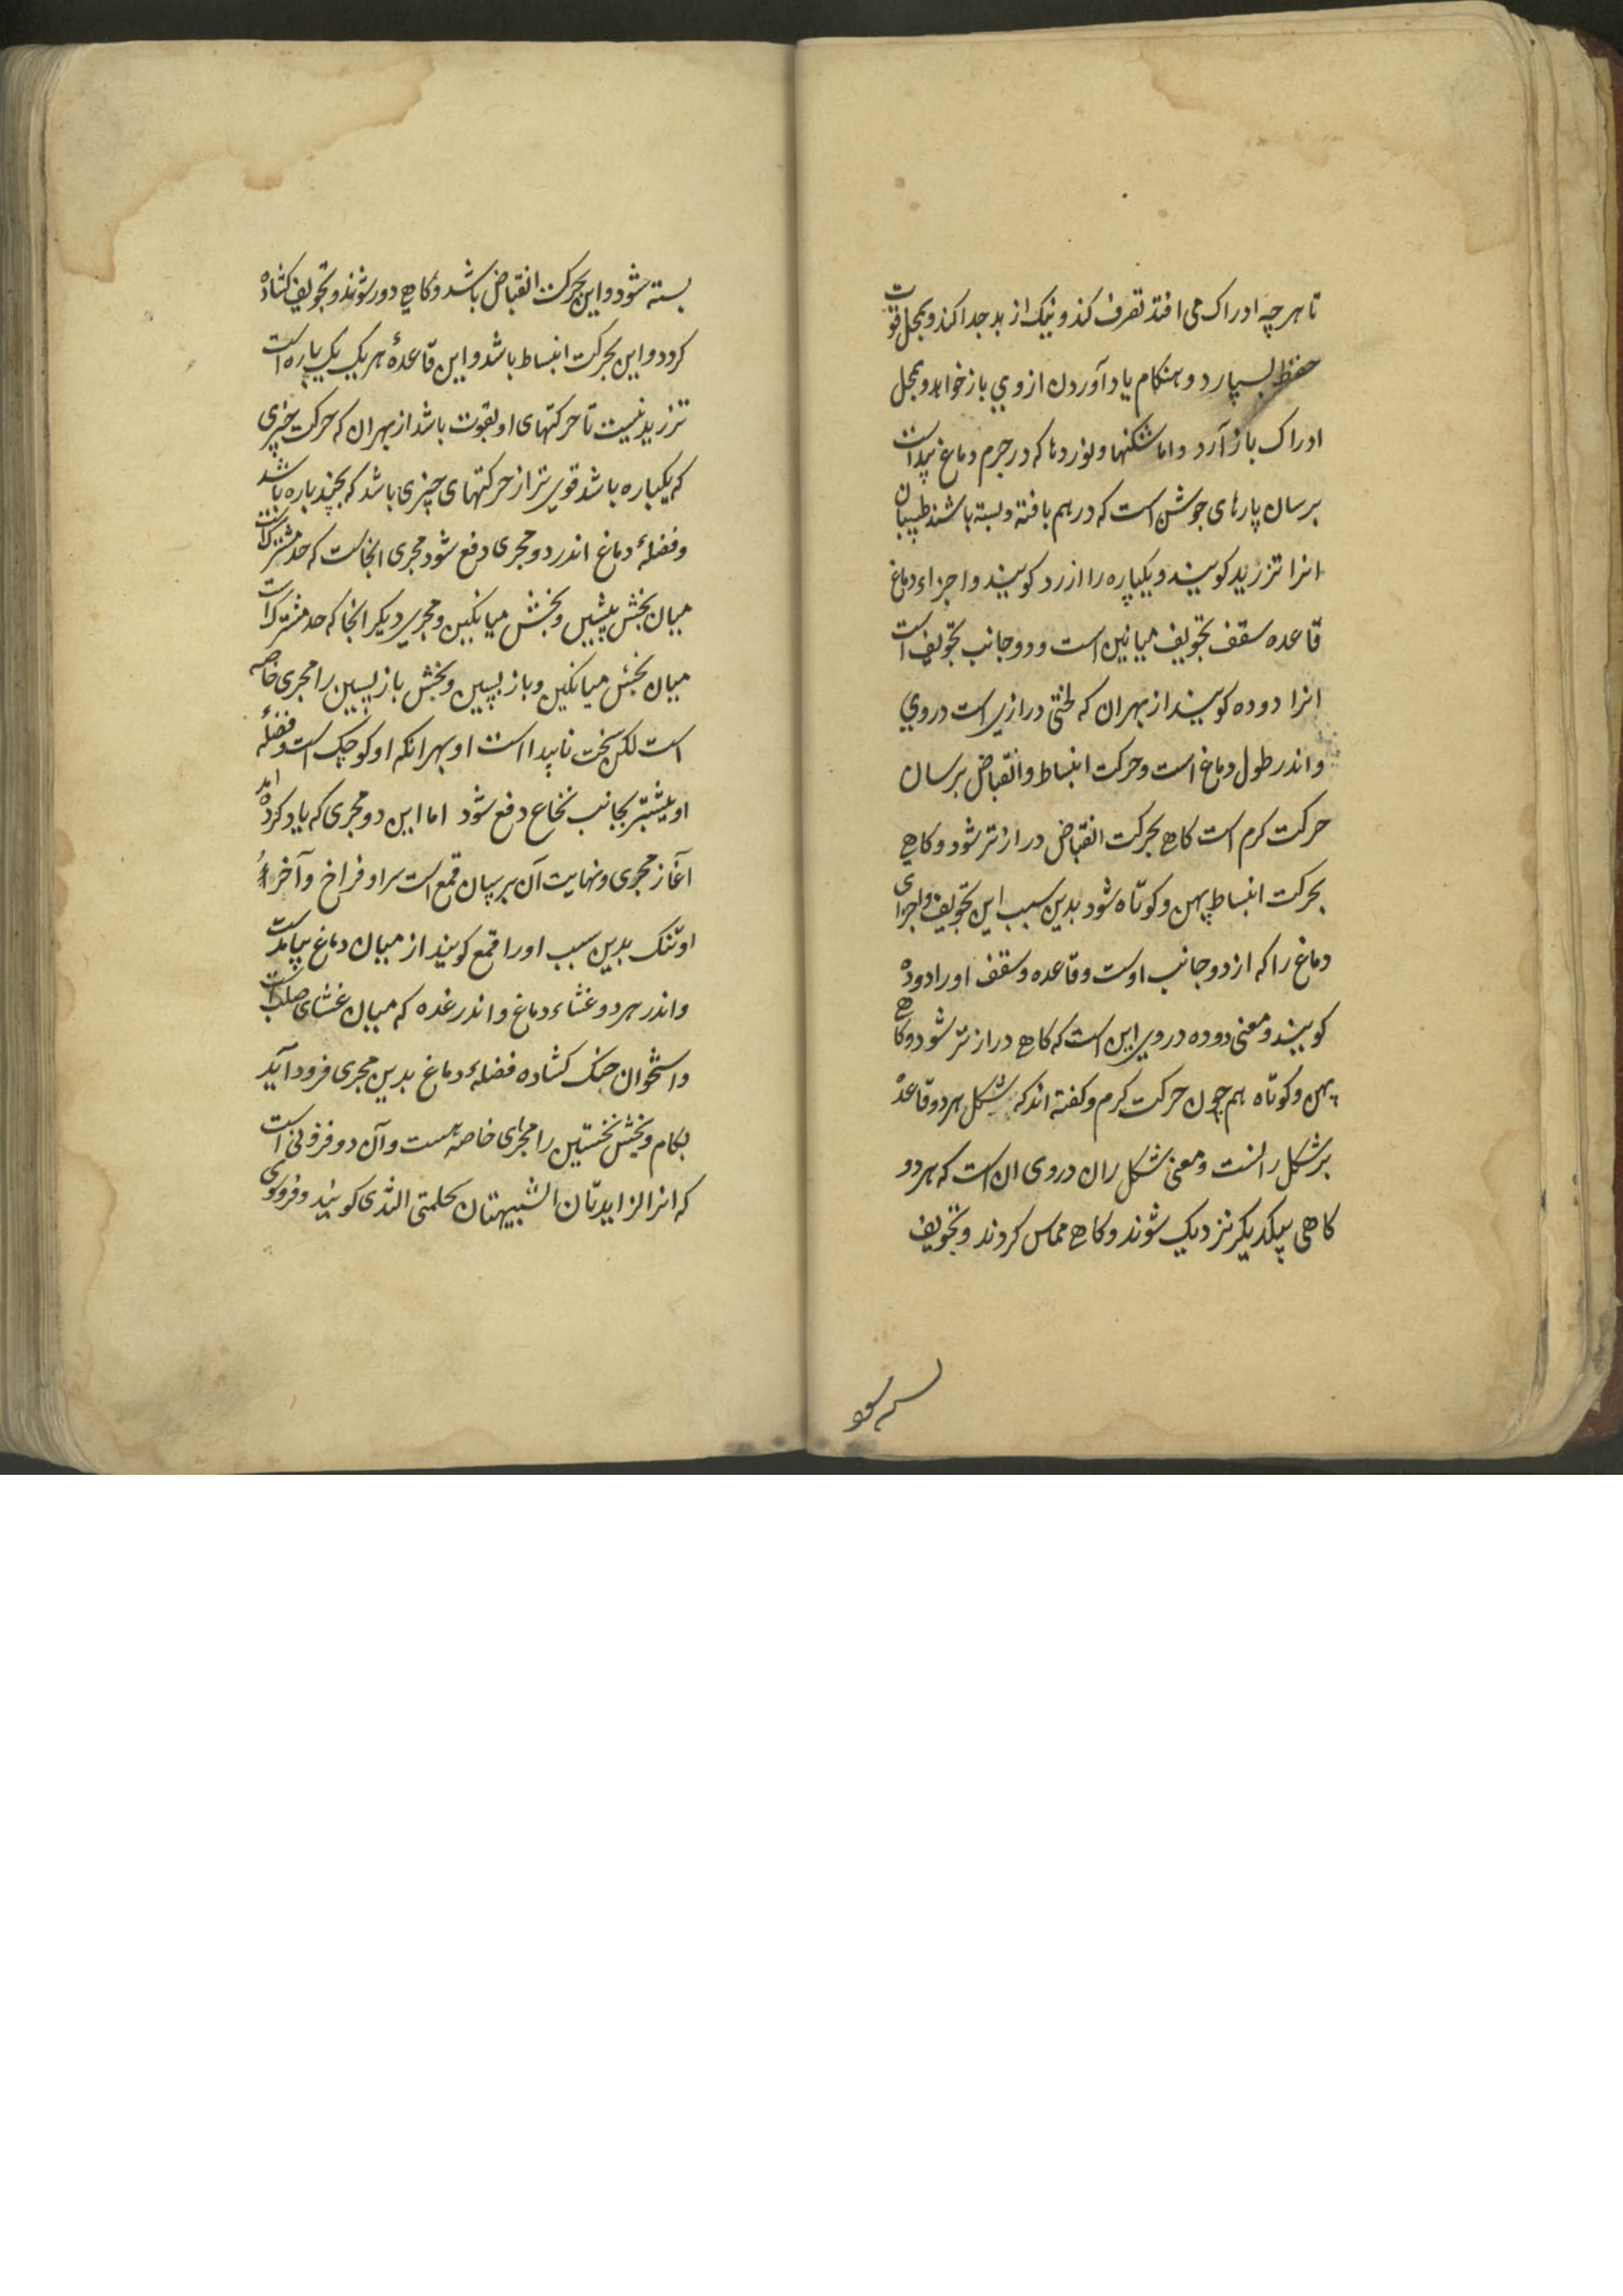 تا هر چه ادراک می افتد تصرف کند و نیک از بد جدا کند و بمحل قوت
حفظ بسپارد و هنکام یاد آوردن از وی باز خواهد و بمحل
ادراک باز آرد و اما شکنها و نوردها که در جرم دماغ پیداست
برسان پارهای جوشن است که در هم بافته و بسته باشند طبیبان
انرا تزرید کویند و یکپاره را ازرد کویند و اجزاء دماغ
قاعده سقف تجویف میانین است و دو جانب تجویف است
انرا دوده کویند از بهر ان که لختی درازی است در وی
و اندر طول دماغ است و حرکت انبساط و انقباض برسان
حرکت کرم است کاهی بحرکت انقباض درازتر شود و کاهی
بحرکت انبساط پهن و کوتاه شود بدین سبب این تجویف و اجزای
دماغ را که از دو جانب اوست و قاعده و سقف او را دوده
کویند و معنی دوده در وی این است که کاهی درازتر شود و کاهی
پهن و کوتاه هم چون حرکت کرم و کفته اند که شکل هر دو قاعده
بر شکل رانست و معنی شکل ران در وی ان است که هر دو
کاهی بیکدیکر نزدیک شوند و کاهی مماس کردند و تجویف
بسته شود و این بحرکت انقباض باشد و کاهی دور شوند و تجویف کشاده
کردد و این بحرکت انبساط باشد و این قاعدهٔ هر یک یک پاره است
تزرید نیست تا حرکتهای او بقوت باشد از بهر ان که حرکت چیزی
که یکپاره باشد قوی تر از حرکتهای چیزی باشد که بچند پاره باشد
و فضلهٔ دماغ اندر دو مجری دفع شود مجری انجاست که حد مشترکست
میان بخش پیشین و بخش میانکین و مجری دیکر انجا که حد مشترک است
میان بخش میانکین و باز پسین و بخش باز پسین را مجری خاصه
است لکن سخت ناپیدا است او بهر انکه او کوچک است و فضلهٔ
او بیشتر بجانب نخاع دفع شود اما این دو مجری که یاد کرده اند
آغاز مجری و نهایت آن برسان قمع است سر او فراخ و آخر
او تنک بدین سبب او را قمع کویند از میان دماغ بیامدست
و اندر هر دو غشاء دماغ و اندر غده که میان غشای صلب است
و استخوان حنک کشاده فضلهٔ دماغ بدین مجری فرود آید
بکام و بخش نخستین را مجرای خاصه هست و آن دو فزونی است
که انرا الزایدتان الشبیهتان بحلمتی الثدی کویند و فزونی